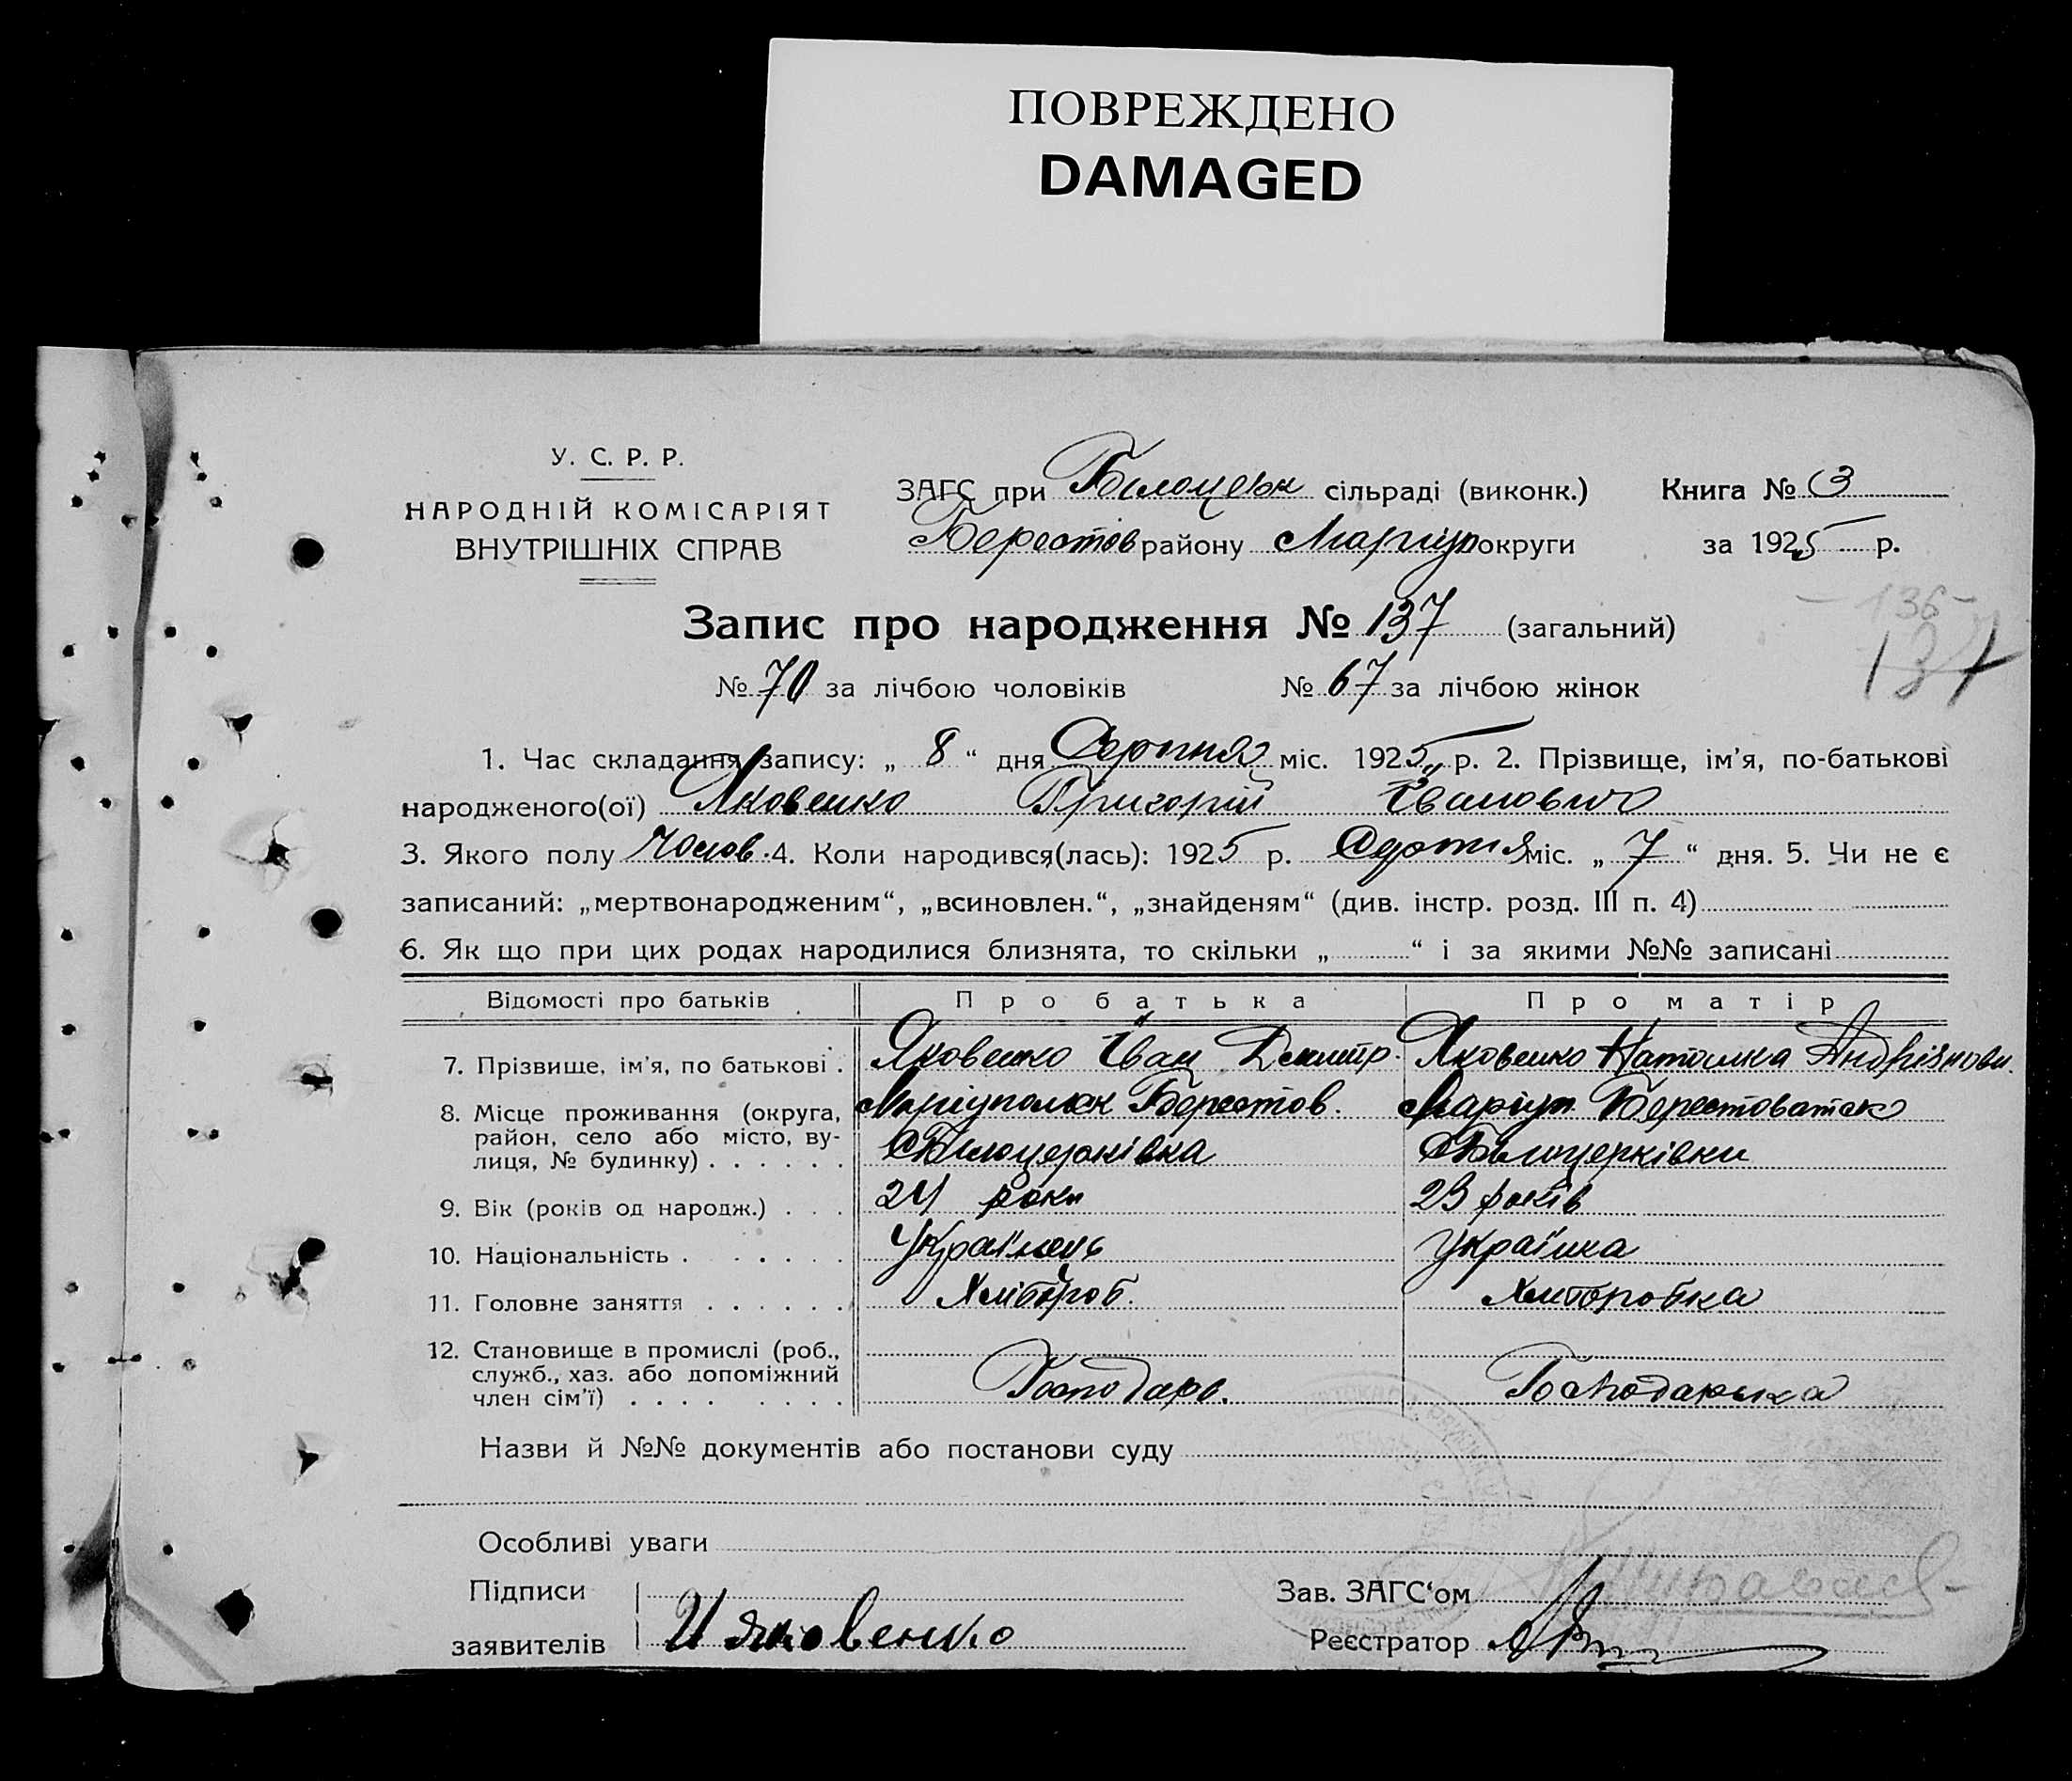 ПОВРЕЖДЕНО
DAMAGED
У. С. Р. Р.
НАРОДНІЙ КОМІСАРІЯТ
ВНУТРІШНІХ СПРАВ
ЗАГС при Білоцерк сільраді (виконк.) Книга № 3
Берестов району Маріуп округи за 1925 р.
Запис про народження № 137 (загальний)
136
137
№ 70 за лічбою чоловіків № 67 за лічбою жінок
1. Час складання запису: „ 8 “ дня Серпня міс. 1925 р. 2. Прізвище, ім'я, по-батькові
народженого(ої) Яковенко Григорій Іванович
3. Якого полу Чолов. 4. Коли народився(лась): 1925 р. Серпня міс. „ 7 “ дня. 5. Чи не є
записаний: „мертвонародженим“, „всиновлен.“, „знайденям“ (див. інстр. розд. III п. 4)
6. Як що при цих родах народилися близнята, то скільки „ “ і за якими №№ записані
Відомості про батьків Про батька Про матір
7. Прізвище, ім'я, по батькові . Яковенко Іван Дмитр. Яковенко Наталка Андріянови.
8. Місце проживання (округа, Маріуполск Берестов. Маріуп. Берестоватск
район, село або місто, ву-
лиця, № будинку) . . . . . . с Білоцерківка с Білоцерківки
9. Вік (років од народж.) . . . 24 роки 23 років
10. Національність . . . . . . Українець Українка
11. Головне заняття . . . . . . Хлібороб. Хліборобка
12. Становище в промислі (роб.,
служб., хаз. або допоміжний
член сім'ї) . . . . . . . . Господарь. Господарька
Назви й №№ документів або постанови суду
Особливі уваги
Підписи Зав. ЗАГС'ом
заявителів И Яковенко Реєстратор